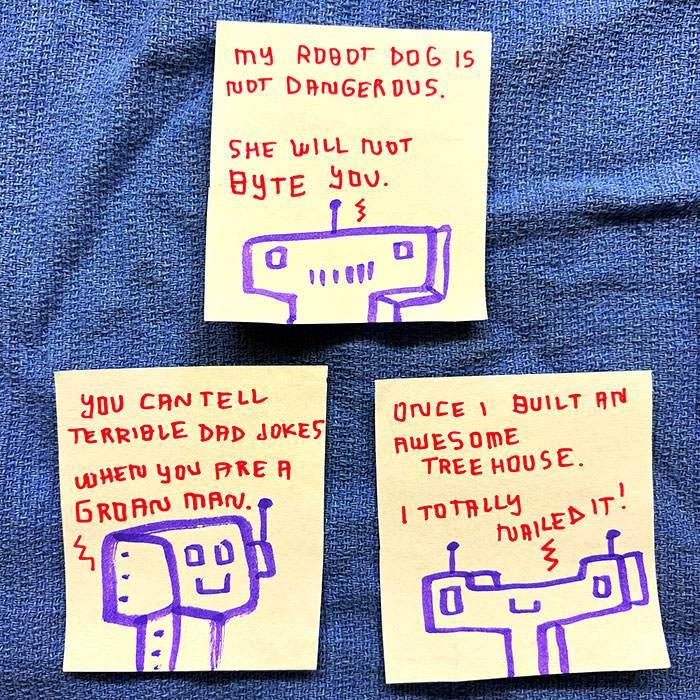 MY ROBOT DOG IS
NOT DANGEROUS.
SHE WILL NOT
BYTE YOU.
YOU CAN TELL
TERRIBLE DAD JOKES
WHEN YOU ARE A
GROAN MAN.
ONCE I BUILT AN
AWESOME
TREE HOUSE.
I TOTALLY
NAILED IT!